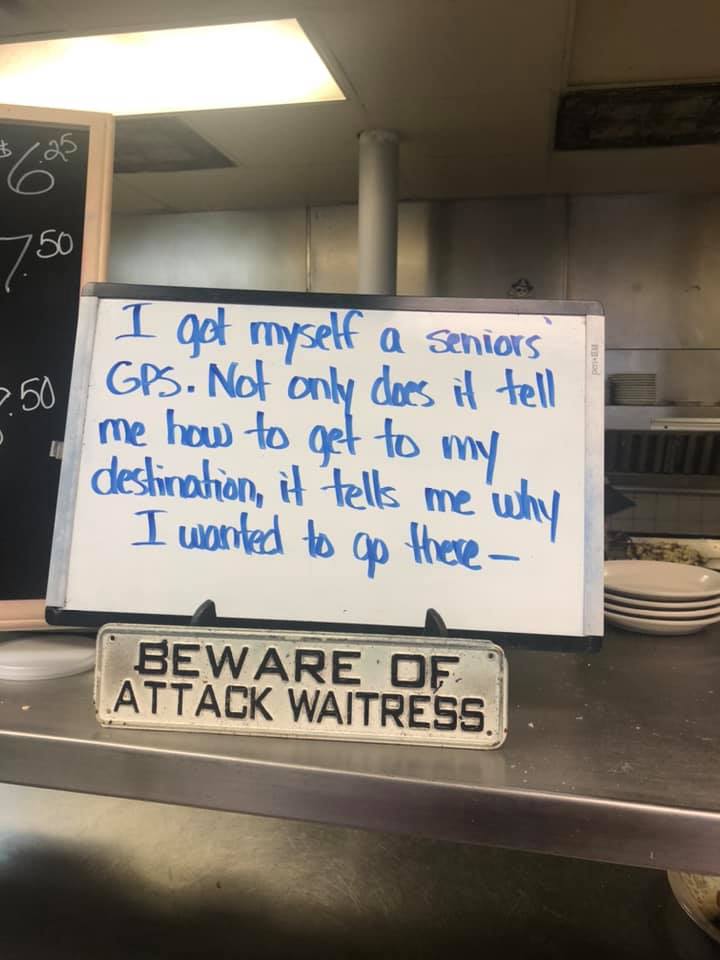 $6.25
7.50
.50
I got myself a seniors'
GPS. Not only does it tell
me how to get to my
destination, it tells me why
I wanted to go there —
BEWARE OF
ATTACK WAITRESS